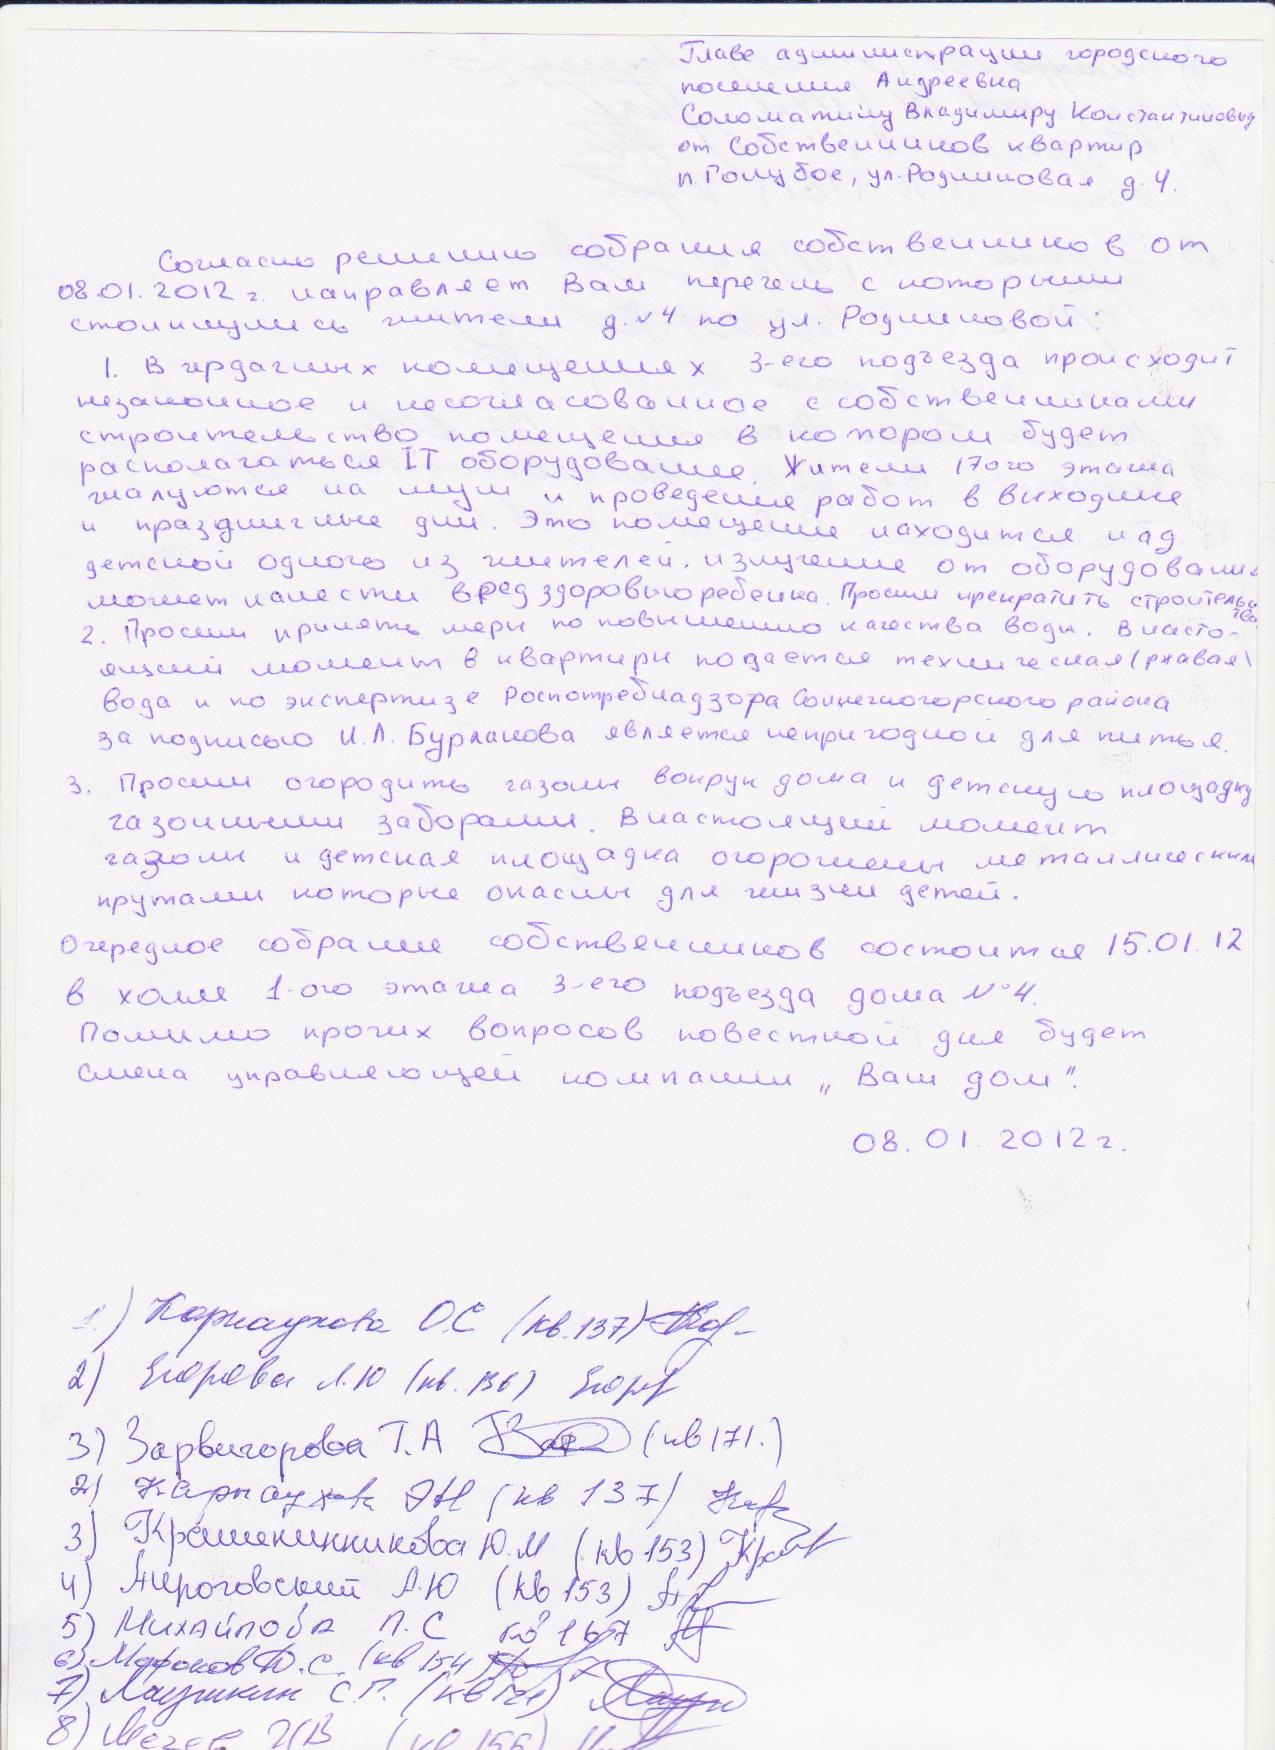 Главе администрации городского
поселения Андреевка
Соломатину Владимиру Константинович
от Собственников квартир
п. Голубое, ул. Родниковая д. 4.
Согласно решению собрания собственников от
08.01.2012 г. направляет Вам перечень с которыми
столкнулись жители д. №4 по ул. Родниковой:
1. В чердачных помещениях 3-его подъезда происходит
незаконное и несогласованное с собственниками
строительство помещения в котором будет
располагаться IT оборудование. Жители 17ого этажа
жалуются на шум и проведения работ в выходные
и праздничные дни. Это помещение находится над
детской одного из жителей. излучение от оборудования
может нанести вред здоровью ребенка. Просим прекратить строительство
2. Просим принять меры по повышению качества воды. В насто-
ящий момент в квартиры подается техническая (ржавая)
вода и по экспертизе Роспотребнадзора Солнечногорского района
за подписью И.Л. Бурлакова является непригодной для питья.
3. Просим огородить газоны вокруг дома и детскую площадку
газонными заборами. В настоящий момент
газоны и детская площадка огорожены металлическими
прутами которые опасны для жизни детей.
Очередное собрание собственников состоится 15.01.12
в холле 1-ого этажа 3-его подъезда дома №4.
Помимо прочих вопросов повесткой дня будет
смена управляющей компании „Ваш дом".
08.01.2012 г.
1.) Карнаухова О.С (кв.137)
2) Егорова Л.Ю (кв. 136) Егор
3) Зарвигорова Т.А (кв 171.)
2) Карнаухова (кв 137)
3) Крашенинникова Ю.М (кв 153)
4) Пироговский А.Ю (кв 153)
5) Михайлова Л.С кв 167
6) Ю.С. (кв 154)
7) Лаушкин С.Г. (кв 121)
8) (кв 156)